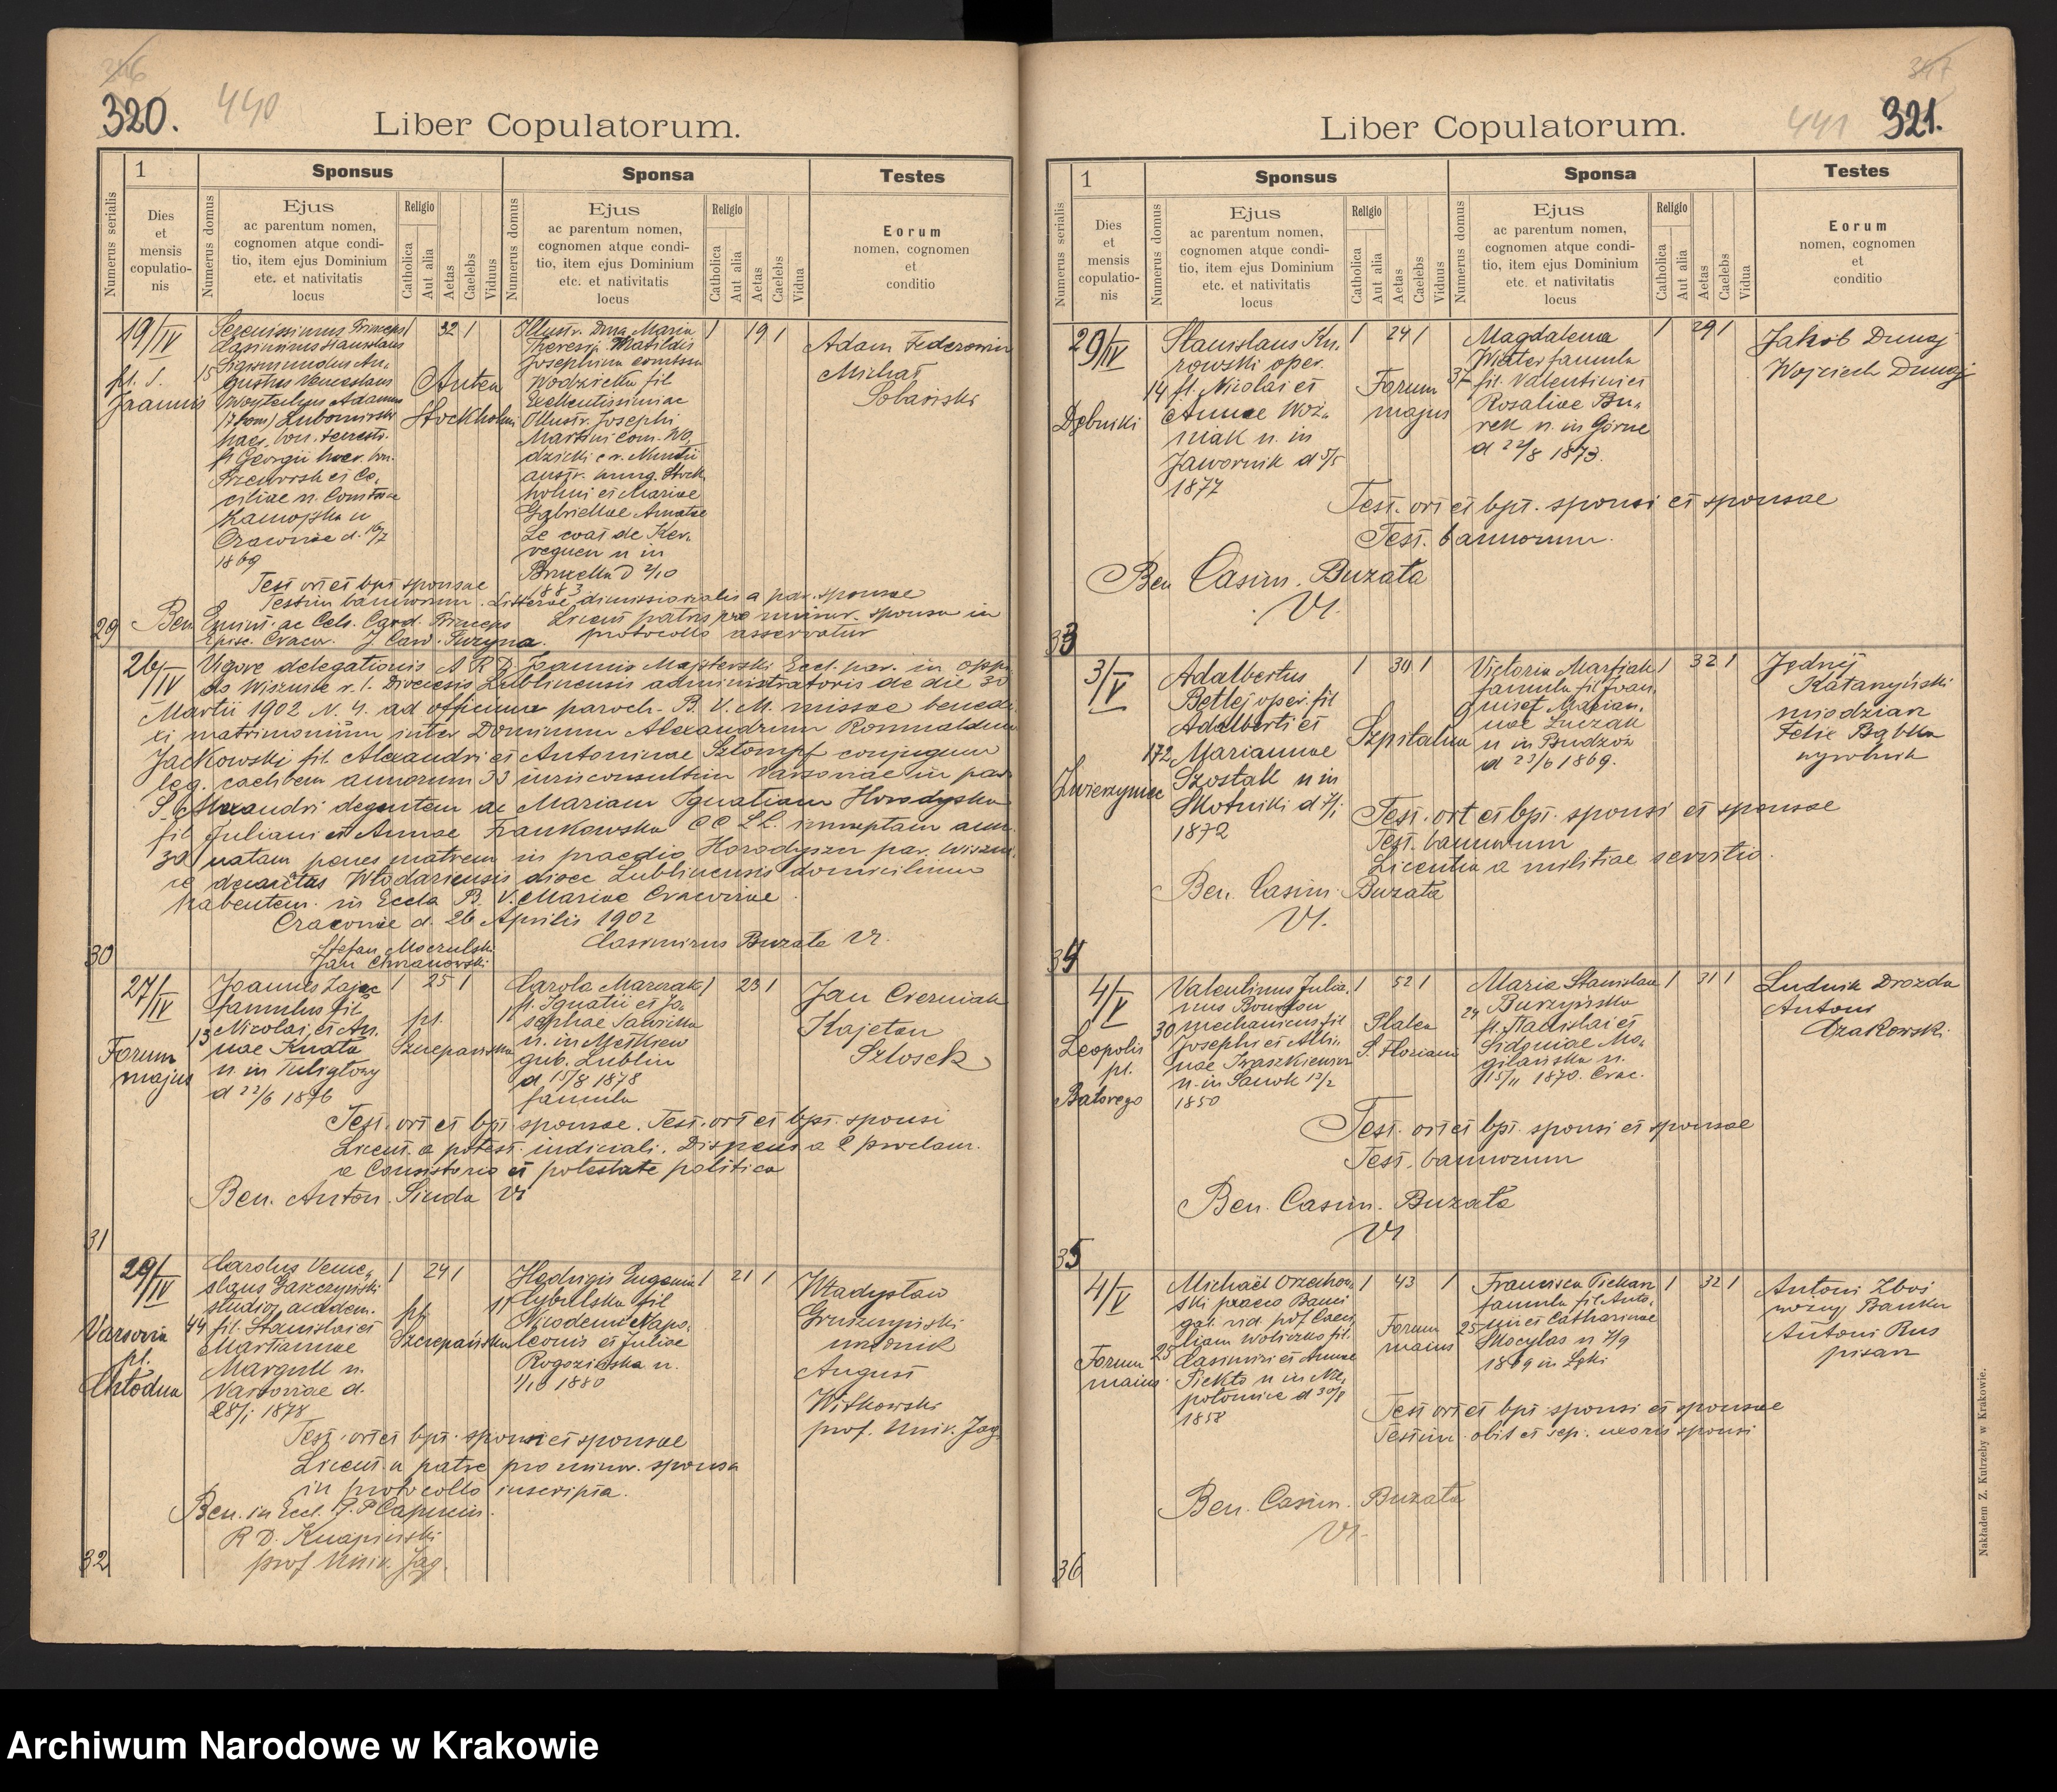 320.
440
Liber Copulatorum.
Numerus serialis
1
Dies
et
mensis
copulatio-
nis
Numerus domus
Sponsus
Ejus
ac parentum nomen,
cognomen atque condi-
tio, item ejus Dominium
etc. et nativitatis
locus
Religio
Catholica
Aut alia
Aetas
Caelebs
Viduus
Numerus domus
Sponsa
Ejus
ac parentum nomen,
cognomen atque condi-
tio, item ejus Dominium
etc. et nativitatis
locus
Religio
Catholica
Aut alia
Aetas
Caelebs
Vidua
Testes
Eorum
nomen, cognomen
et
conditio
29
19/IV
pl. S.
Joannis
15
Serenissimus Princeps
Casimirus Stanislaus
Sigismundus Au-
gustus Venceslaus
Adamus
Lubomirski
haer. bon. terrestr.
fil Georgii haer. bon.
Przeworsk et Ce-
ciliae n. Comitissae
Zamojska n
Cracoviae d. 16/7
1869
1
32
1
Antea
Stockholm
Illustr. Dna Maria
Theresia Matildis
Josephina comitissa
Wodzicka fil
Excellentissimi ac
Illustr. Josephi
Martini com. Wo-
dzicki c. r. Nuntii
austr. hung. Stock-
holmi et Mariae
Gabrielae Amatae
Le coat de Ker-
veguen n in
Bruxella d 2/10
883
1
19
1
Adam Federowicz
Michał
Sobański
Test ort et bpt sponsae
Testim bannorum. Litterae dimissoriales a par. sponsae
Licent patris pro minor. sponsa in
protocollo asservatur
Ben Emint. ac Cels. Card. Princeps
Episc. Cracov. J Card. Puzyna.
30
26/IV
Vigore delegationis A R D Joannis Majsterski Eccl. par. in oppi
do Wisznice r. l. Dioecesis Lublinensis administratoris de die 30
Martii 1902 N. 4. ad officium paroch. B. V. M. missae benedi
xi matrimonium inter Dominum Alexandrum Romualdum
Jackowski fil. Alexandri et Antoninae Sztompf conjugum
leg. caelibem annorum 33 jurisconsultum Varsoviae in par
S. Alexandri degentem ac Mariam Ignatiam Horodyska
fil Juliani et Annae Frankowska CC LL. innuptam ann.
30 natam penes matrem in praedio Horodyszcze par. Wiszni
ce decanatus Włodaviensis dioec Lublinensis domicilium
habentem. in Eccla B. V. Mariae Cracoviae
Cracoviae d. 26 Aprilis 1902
Casimirus Buzała Vr.
Stefan Moczulski
Jan Chrzanowski
31
27/IV
Forum
majus
13
Joannes Zając
famulus fil
Nicolai et An-
nae Knata
n. in Tuligłowy
d 22/6 1876
1
25
1
pl.
Szczepańska
11
Carola Marczak
fil. Ignatii et Jo-
sephae Sawicka
n. in Mętkiew
gub. Lublin
d 15/8 1878
famula
1
23
1
Jan Czerniak
Kajetan
Szlosek
Test. ort et bpt sponsae. Test. ort et bpt. sponsi
Licent. a potest. judiciali. Dispens a 2 proclam.
a Consistorio et potestate politica
Ben. Anton. Siuda Vr
32
29/IV
Varsovia
pl.
Chłodna
44
Carolus Vence-
slaus Gaszczyński
studios. academ.
fil. Stanislai et
Mariannae
Margull n.
Varsoviae d.
28/1 1878
1
24
1
pl.
Szczepańska
11
Hedvigis Eugenia
Cybulska fil
Nicodemi Napo-
leonis et Juliae
Rogozińska n.
1/10 1880
1
21
1
Władysław
Gruszczyński
urzędnik
August
Witkowski
prof. Univ. Jag.
Test. ort et bpt. sponsi et sponsae
Licent. a patre pro minor. sponsa
in protocollo inscripta.
Ben. in Eccl. P. P Capucin.
R D. Knapiński
prof Univ. Jag.
441
321.
Liber Copulatorum.
Numerus serialis
1
Dies
et
mensis
copulatio-
nis
Numerus domus
Sponsus
Ejus
ac parentum nomen,
cognomen atque condi-
tio, item ejus Dominium
etc. et nativitatis
locus
Religio
Catholica
Aut alia
Aetas
Caelebs
Viduus
Numerus domus
Sponsa
Ejus
ac parentum nomen,
cognomen atque condi-
tio, item ejus Dominium
etc. et nativitatis
locus
Religio
Catholica
Aut alia
Aetas
Caelebs
Vidua
Testes
Eorum
nomen, cognomen
et
conditio
33
29/IV
Dębniki
14
Stanislaus Ku-
rowski oper.
fil. Nicolai et
Annae Woź-
niak n. in
Jawornik d 5/5
1877
1
24
1
Forum
majus
37
Magdalena
Wiater famula
fil. Valentini et
Rosaliae Bu-
rek n. in Górne
d 22/8 1873.
1
29
1
Jakób Dunaj
Wojciech Dunaj
Test. ort et bpt. sponsi et sponsae
Test. bannorum.
Ben Casim. Buzała
Vr.
34
3/V
Zwierzyniec
172
Adalbertus
Betlej oper. fil
Adalberti et
Mariannae
Szostak n in
Skotniki d 7/1
1872
1
30
1
Szpitalna
9
Victoria Marfiak
famula fil Joan-
nis et Marian-
nae Łuczak
n in Brudzów
d 23/6 1869.
1
32
1
Jędrzéj
Katarzyński
miodziarz
Felix Bąbka
wyrobnik
Test. ort et bpt. sponsi et sponsae
Test. bannorum
Licentia a militiae servitio.
Ben. Casim. Buzała
Vr.
35
4/V
Leopolis
pl.
Batorego
30
Valentinus Julia-
nus Bourdon
mechanicus fil
Josephi et Albi-
nae Iwaszkiewicz
n. in Sanok 13/2
1850
1
52
1
Platea
S. Floriani
24
Maria Stanislaa
Burzyńska
fil. Ladislai et
Sidoniae Mo-
gilańska n.
15/11 1870. Crac.
1
31
1
Ludwik Drozda
Antoni
Czakowski
Test. ort et bpt. sponsi et sponsae
Test. bannorum
Ben. Casim. Buzała
Vr
36
4/V
Forum
maius.
25
Michaël Orzechow-
ski praeco Banci
gal. vid. post Caeci-
liam Woliczko fil.
Casimiri et Annae
Piekto n in Nie-
połomice d 30/8
1858
1
43
1
Forum
maius
25
Francisca Piekarz
famula fil Anto-
nii et Catharinae
Skoczylas n 7/9
1869 in Łęki
1
32
1
Antoni Zboś
woźny Banku
Antoni Rus
pisarz
Test ort et bpt sponsi et sponsae
Testim. obit et sep. uxoris sponsi
Ben. Casim. Buzała
Vr.
Nakładem Z. Kutrzeby w Krakowie.
Archiwum Narodowe w Krakowie